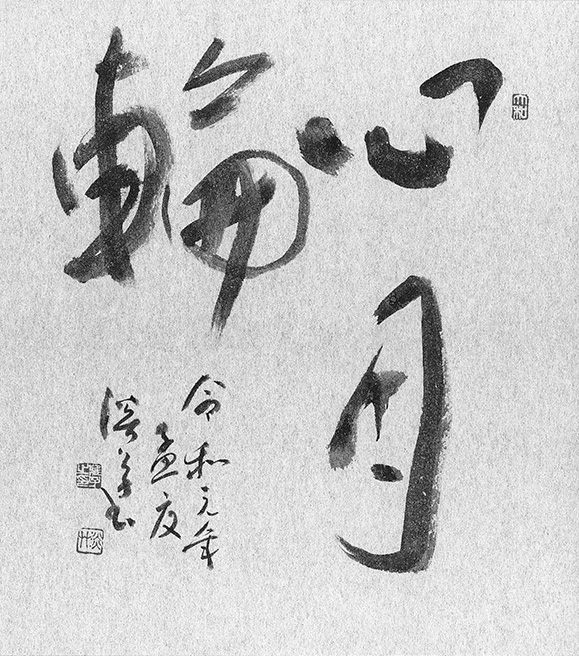 心月
輪
令和元年
孟夏